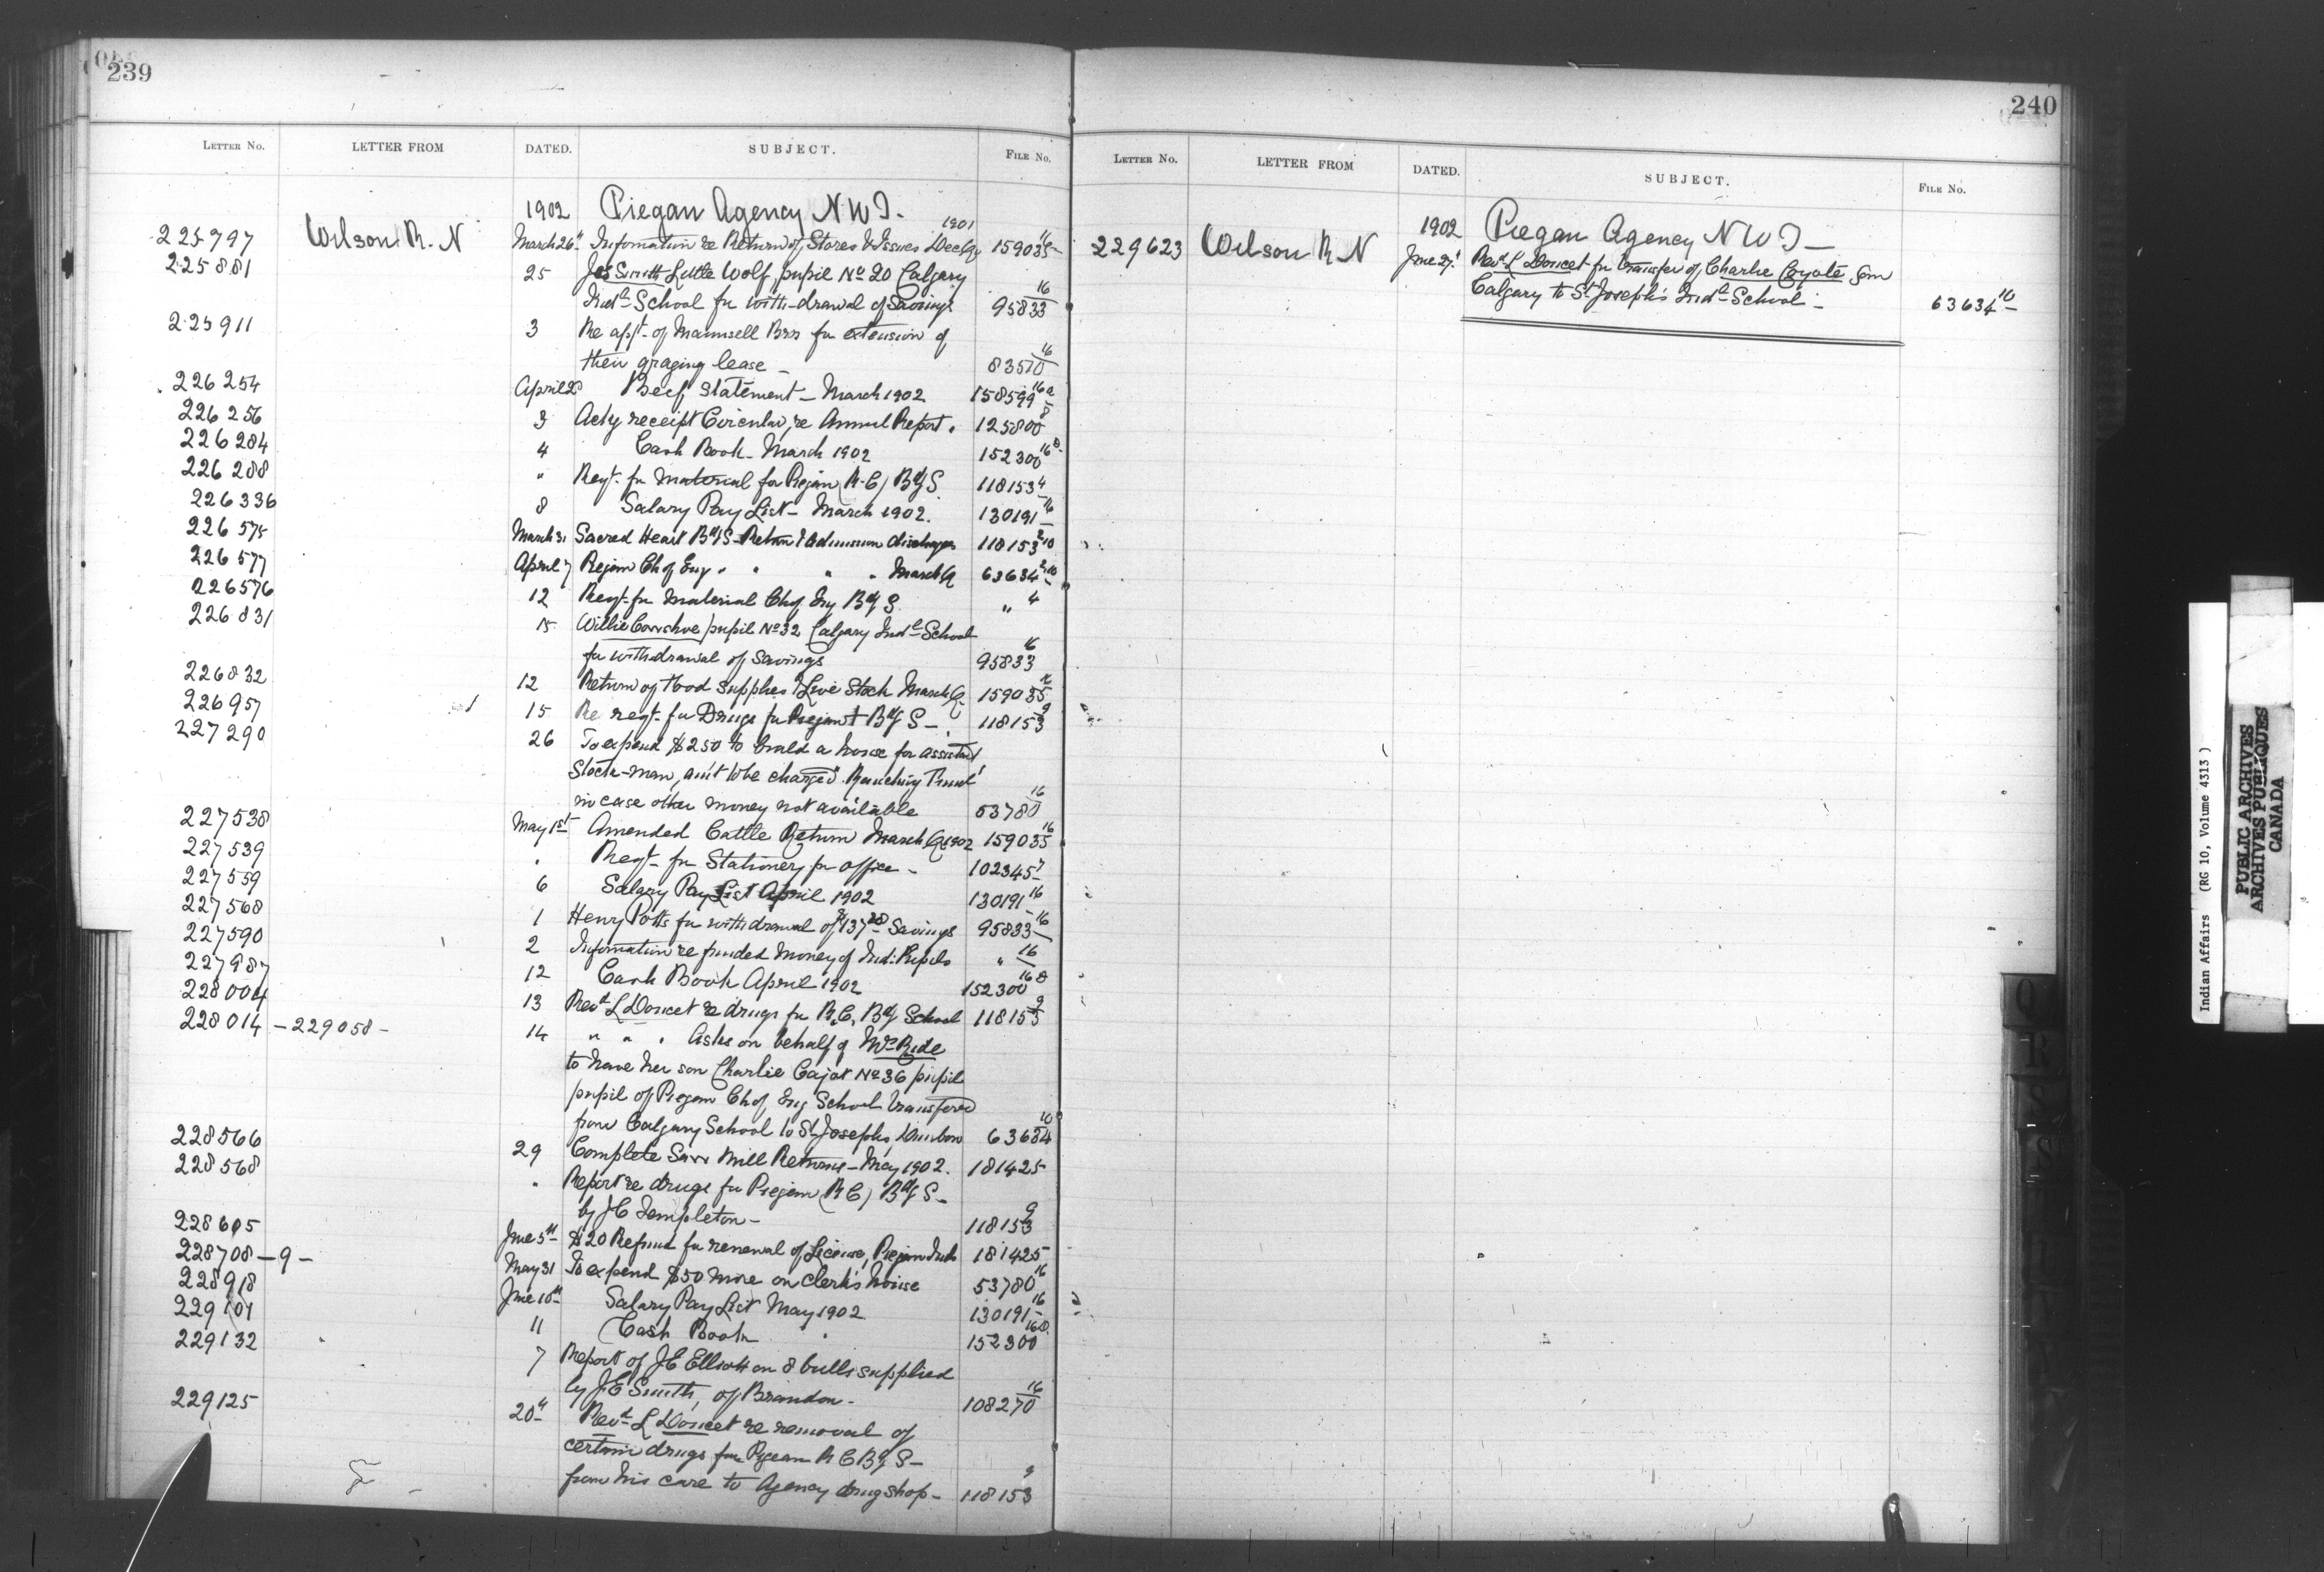 239
LETTER No. LETTER FROM DATED. SUBJECT. FILE No.
1902 Piegan Agency N W T.
225797 Wilson R. N March 26" Information re Return of Stores & Issues Dec Q. 1901 159035 16
225881 25 Jos Smith Little Wolf, pupil No 20 Calgary
Indl School for with-drawal of Savings 95833 16
225911 3 Re appt of Maunsell Bros for extension of
their grazing lease - 83570 16
226254 April 2d Beef Statement - March 1902 158599 16a
226256 3 Ackg receipt Circular, re Annual Report. 125800 8
226284 4 Cash Book - March 1902 152300 16
226288 " Reqt. for material for Piegan (R.C) Bdg S. 118153 4
226336 8 Salary Pay List - March 1902. 130191 16
226575 March 31 Sacred Heart Bdg S Return & admission discharges 118153
226577 April 7 Piegan Ch of Eng " " " " March Q 63634
226576 12 Reqt. for Material Ch of Eng Bdg S. " 4
226831 15 Willie Crowshoe pupil No 32 Calgary Indl School
for withdrawal of Savings 95833 16
226832 12 Return of Food Supplies & Live Stock March Q. 159035 16
226957 15 Re reqt. for Drugs for Piegan Bdg S - 118153 9
227290 26 To expend $250 to build a house for assistant
Stock-man, amt to be charged Ranching Trust
in case other money not available 53780 16
227538 May 1st Amended Cattle Return March Q 1902 159035 16
227539 " Reqt. for Stationery for office - 102345 7
227559 6 Salary Pay List April 1902 130191 16
227568 1 Henry Potts for withdrawal of $137 Savings 95833 16
227590 2 Information re funded money of Ind. Pupils " 16
227987 12 Cash Book April 1902 152300 16
228004 13 Revd L Doucet re drugs for R.C. Bdg School 118153 9
228014 - 229058 - 14 " " " Asks on behalf of Mrs Ride
to have her son Charlie Cajot No 36 pupil
pupil of Piegan Ch of Eng School transfered
from Calgary School to St Josephs, Dunbow 63634 10
228566 29 Complete Saw Mill Returns - May 1902. 181425
228568 " Report re drugs for Piegan (R C) Bdg S -
by J C Templeton - 118153 9
228605 June 5th $20 Refund for renewal of License, Piegan Inds 181425
228708 - 9 - May 31 To expend $50 more on Clerk's house 53780 16
228918 June 10th Salary Pay List May 1902 130191 16
229101 11 Cash Book " 152300
229132 7 Report of J E Elliott on 8 bulls supplied
by J E Smith, of Brandon - 108270 16
229125 20th Revd L Doucet re removal of
certain drugs for Piegan R C Bdg S -
from his care to Agency drug shop - 118153 9
240
LETTER No. LETTER FROM DATED. SUBJECT. FILE No.
1902 Piegan Agency N W T -
229623 Wilson R N June 27 Revd L Doucet for transfer of Charlie Coyote from
Calgary to St Joseph's Indl School - 63634 10
Indian Affairs (RG 10, Volume 4313)
PUBLIC ARCHIVES
ARCHIVES PUBLIQUES
CANADA
Q
R
S